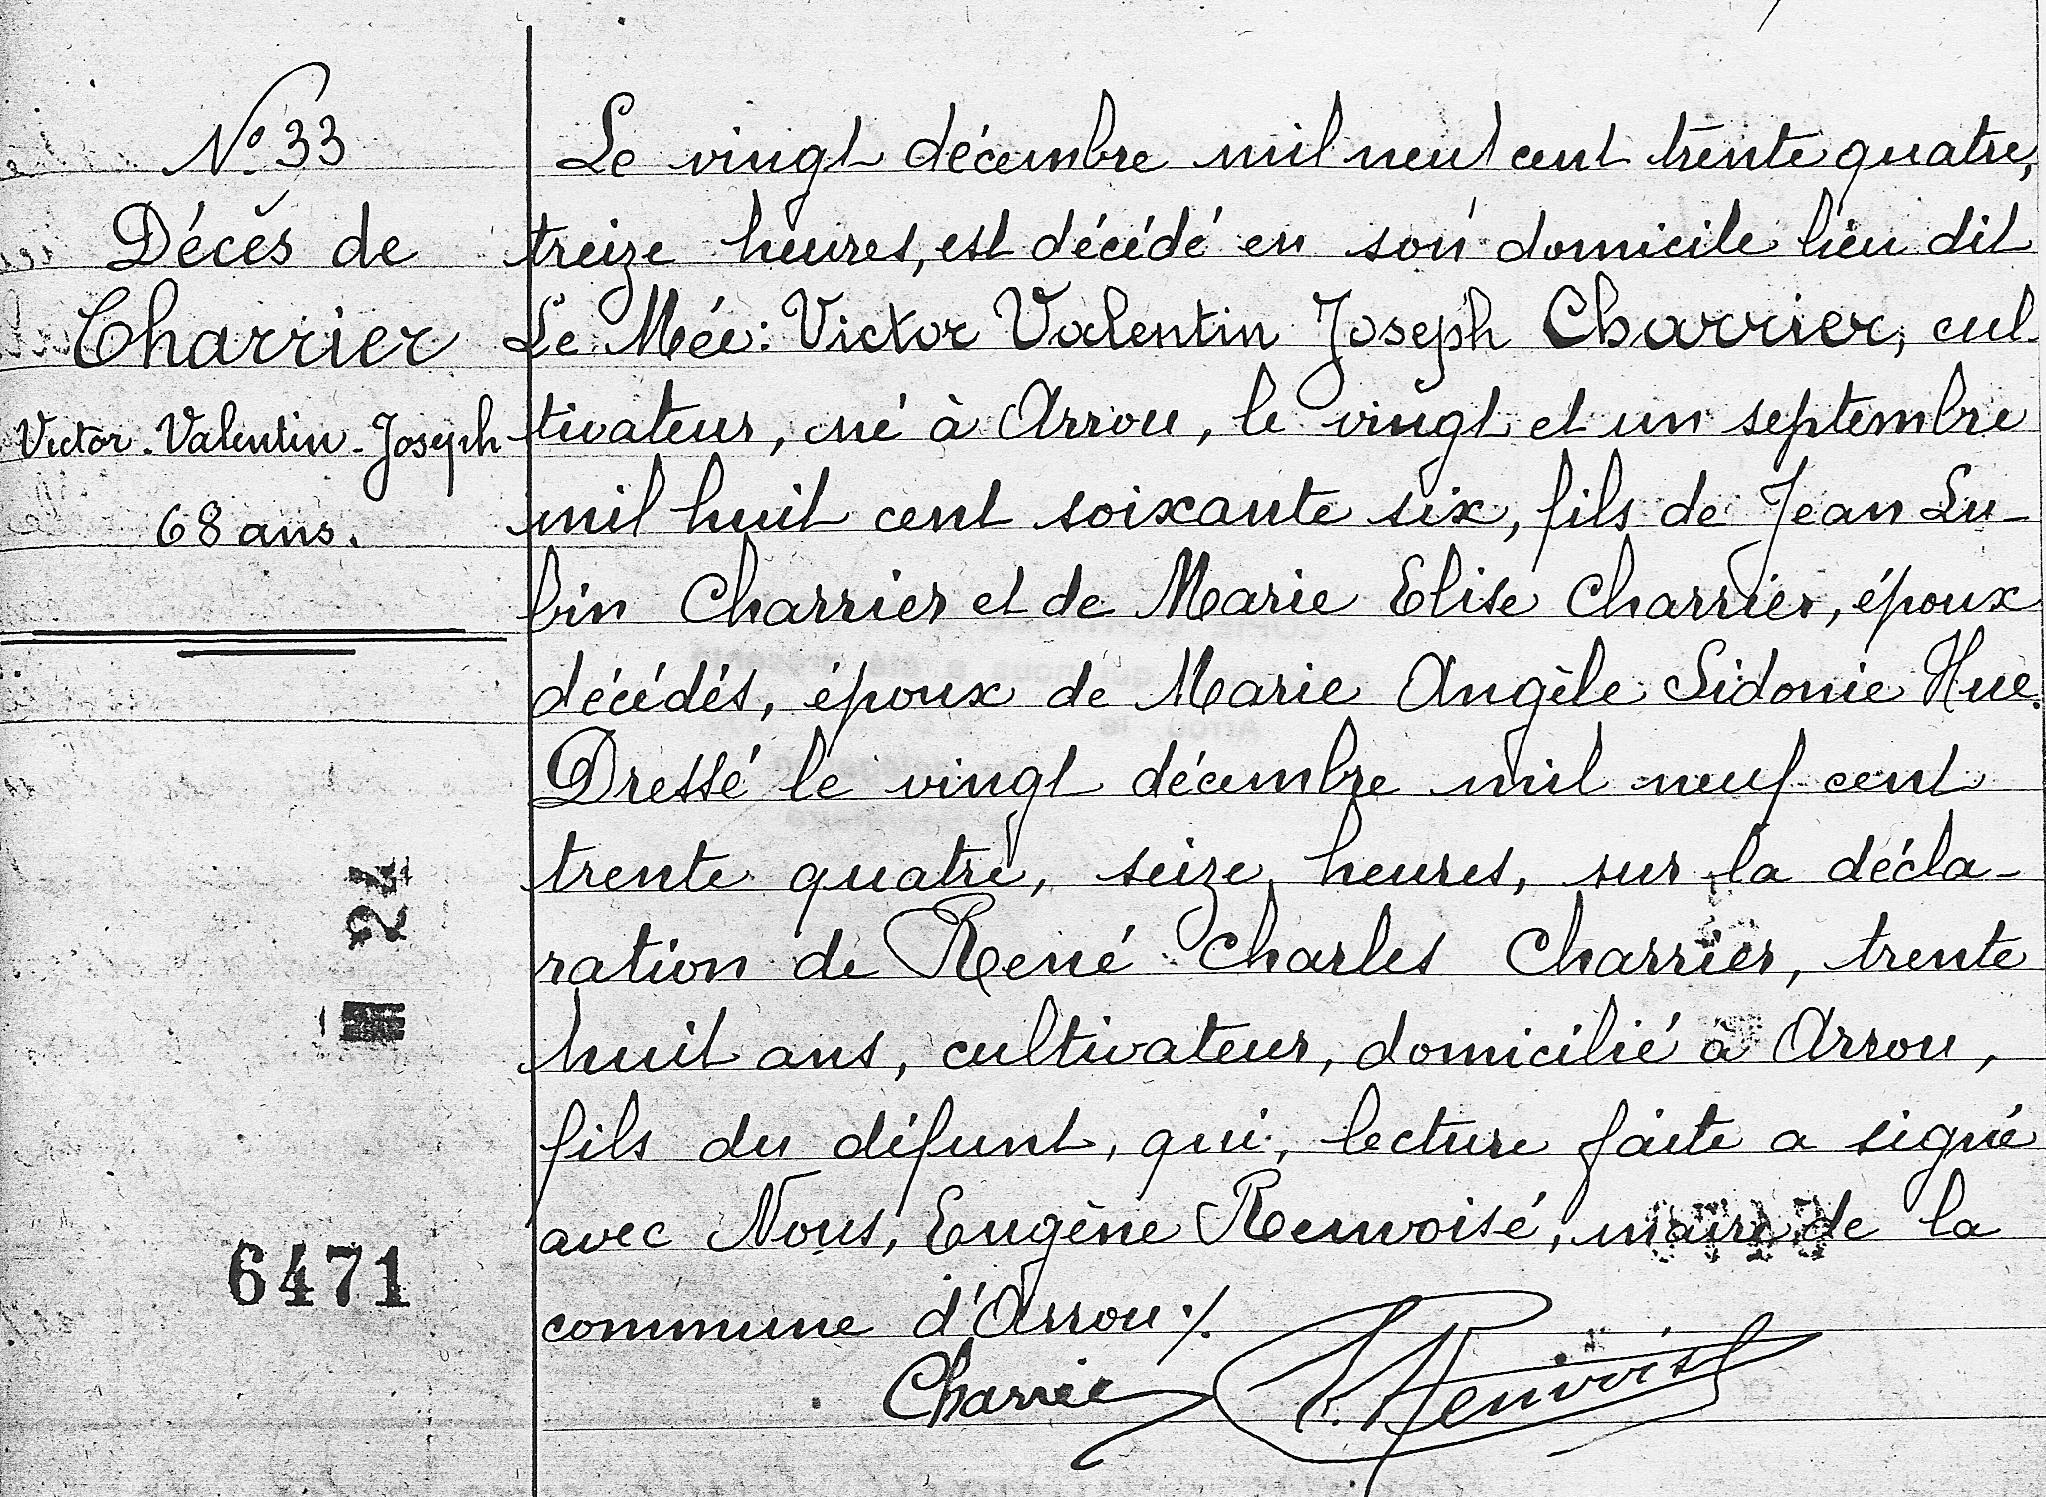 N° 33
Décès de
Charrier
Victor-Valentin-Joseph
68 ans.
24
6471
Le vingt décembre mil neuf cent trente quatre,
treize heures, est décédé en son domicile lieu dit
Le Mée: Victor Valentin Joseph Charrier, cul-
tivateur, né à Arrou, le vingt et un septembre
mil huit cent soixante six, fils de Jean Lu-
bin Charrier et de Marie Elise Charrier, époux
décédés, époux de Marie Angèle Sidonie Hue.
Dressé le vingt décembre mil neuf cent
trente quatre, seize heures, sur la décla-
ration de René Charles Charrier, trente
huit ans, cultivateur, domicilié à Arrou,
fils du défunt, qui, lecture faite a signé
avec Nous, Eugène Renvoisé, maire de la
commune d'Arrou ./.
Charrier E. Renvoisé